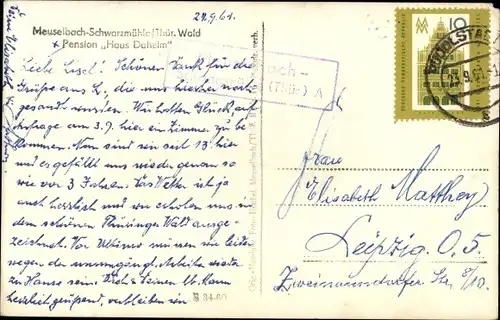 21.9.61.
Meuselbach-Schwarzmühle (Thür. Wald
+ Pension „Haus Daheim"
Liebe Lisel! Schönen Dank für die
Grüsse aus L., die uns hierher nach-
gesandt wurden. Wir hatten Glück, auf
Anfrage am 3.9. hier ein Zimmer zu be-
kommen. Nun sind wir seit 13. hier
und es gefällt uns wieder genau so
wie vor 3 Jahren. Das Wetter ist ja
auch herrlich und wir erholen uns in
dem schönen Thüringer Wald ausge-
zeichnet. Vor Ultimo müssen wir leider
wegen der
zu Hause sein. Dich & Deinen lb. Mann
herzlich grüßend, verbleiben wir
B 34-60
(Thür.) A
10
RUDOLSTADT
23.9.61
Frau
Elisabeth Matthey
Leipzig O.5.
Zweinaundorfer Str. 8/10.